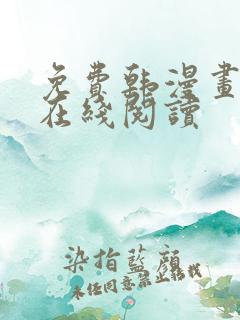 免費韩漫畫
在綫閱讀
染指藍顔
未经同意禁止轉載